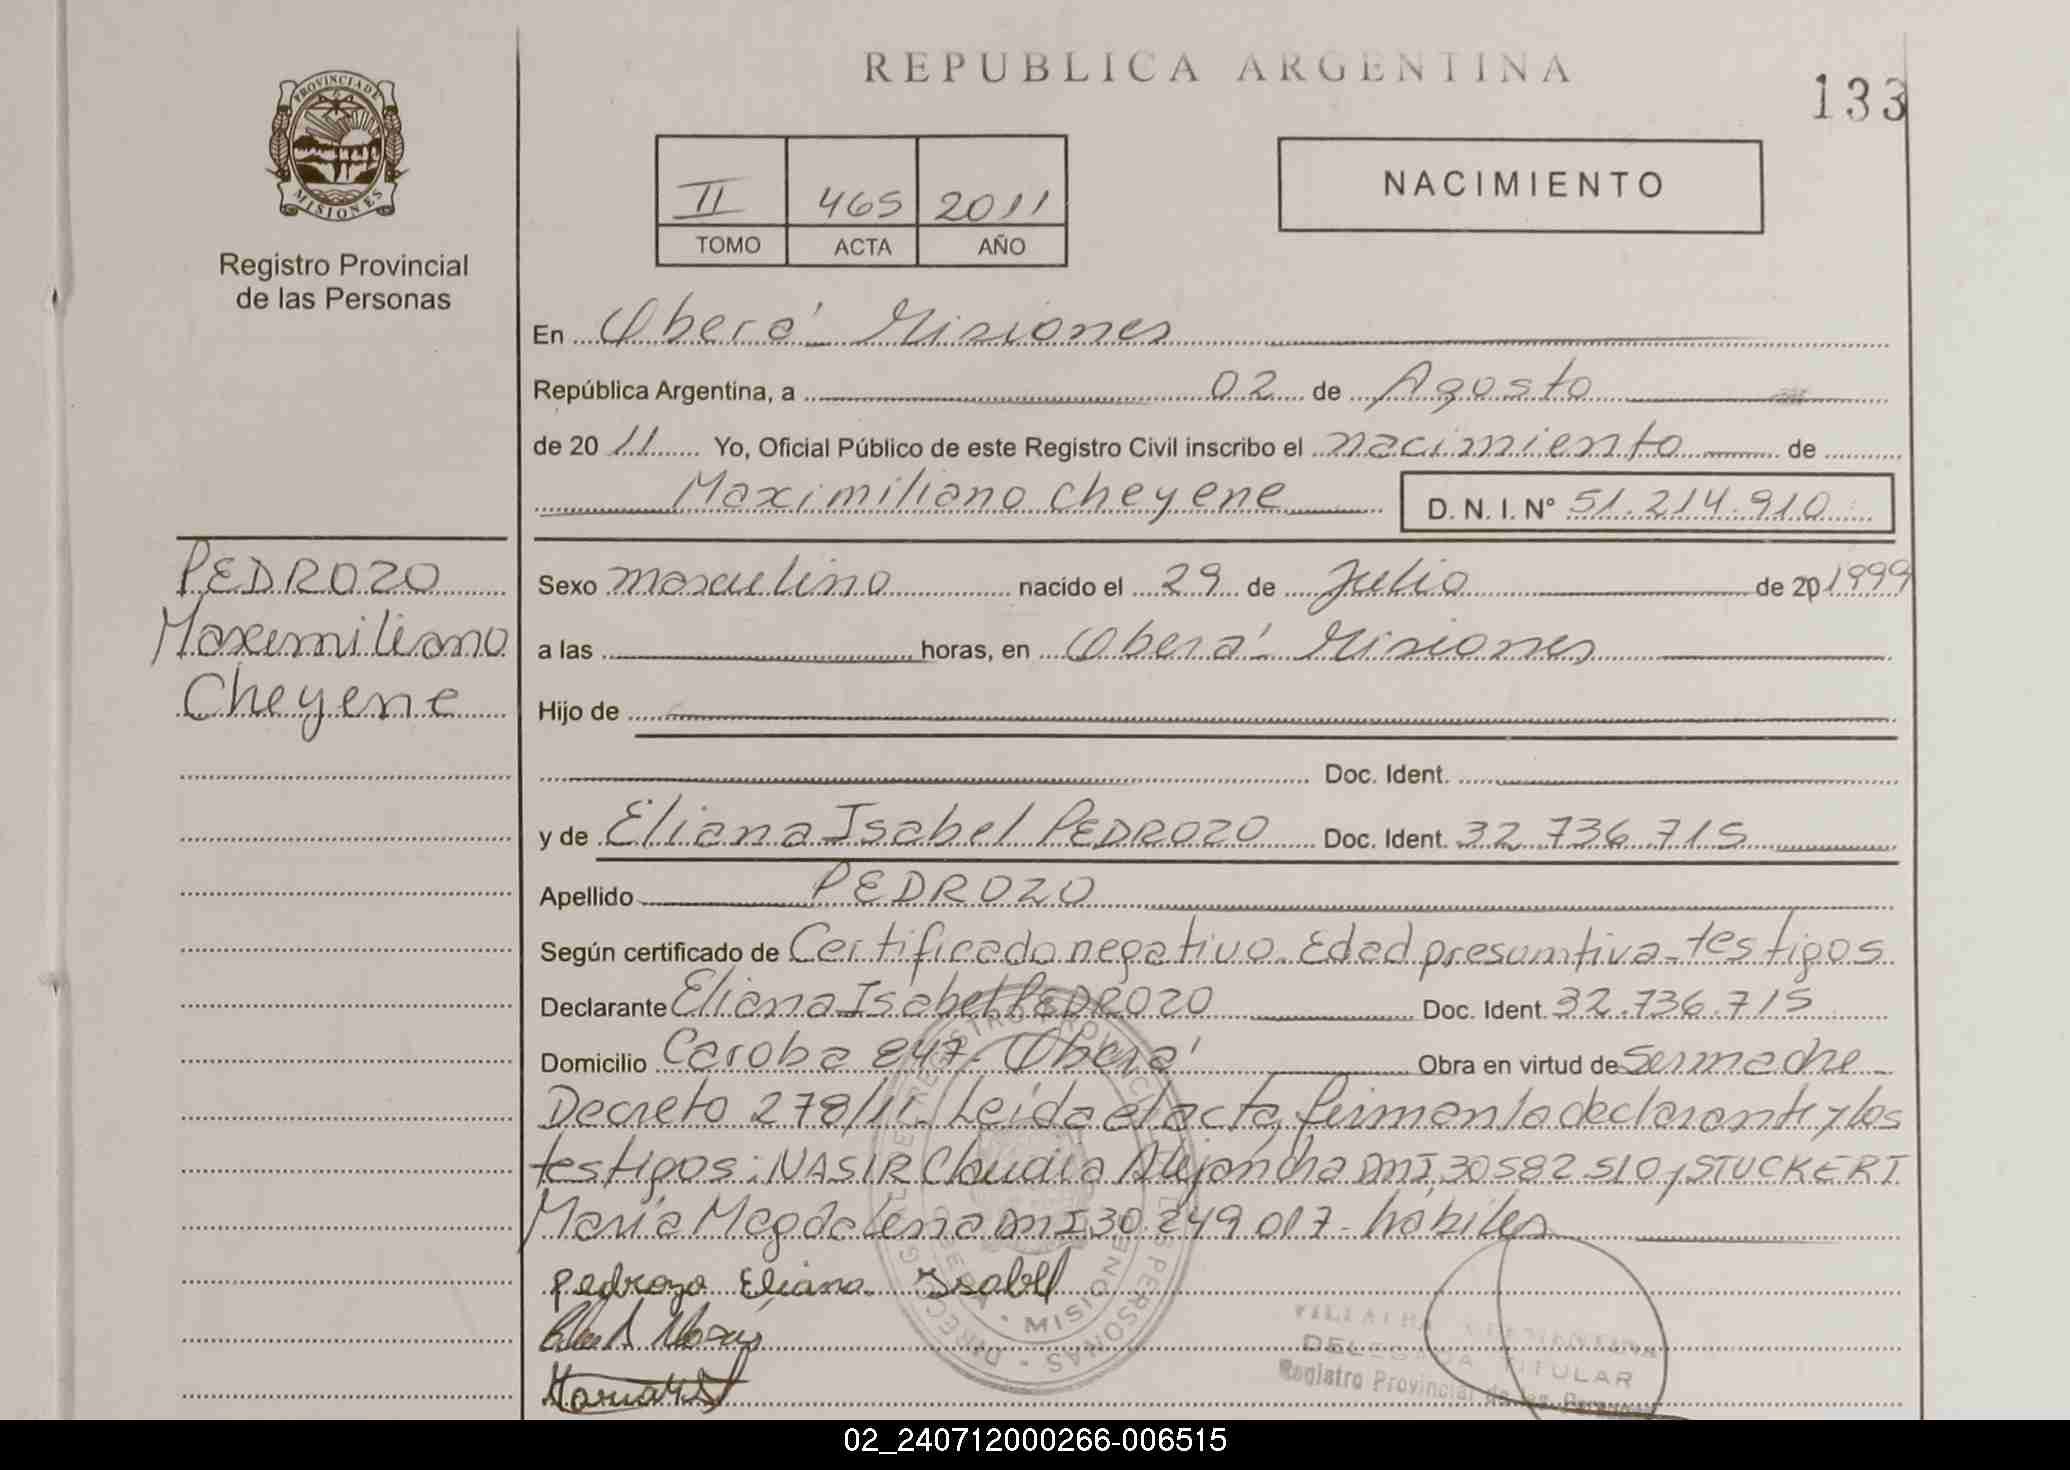 REPUBLICA ARGENTINA
133
PROVINCIA DE
MISIONES
Registro Provincial
de las Personas
II 465 2011
TOMO ACTA AÑO
NACIMIENTO
En Oberá - Misiones
República Argentina, a 02 de Agosto
de 20 11 Yo, Oficial Público de este Registro Civil inscribo el nacimiento de
Maximiliano Cheyene D. N. I. Nº 51.214.910
PEDROZO
Maximiliano
Cheyene
Sexo masculino nacido el 29 de Julio de 20 1999
a las horas, en Oberá - Misiones
Hijo de
Doc. Ident.
y de Eliana Isabel PEDROZO Doc. Ident. 32.736.715
Apellido PEDROZO
Según certificado de Certificado negativo. Edad presuntiva - testigos
Declarante Eliana Isabel PEDROZO Doc. Ident. 32.736.715
Domicilio Caroba 847 - Oberá Obra en virtud de Ser madre
Decreto 278/11. Leída el acta, firman la declarante y los
testigos: NASIR Claudia Alejandra DNI 30582.510 y STUCKERT
María Magdalena DNI 30.249.017 - hábiles
Pedrozo Eliana Isabel
DELEGADA TITULAR
Registro Provincial de las Personas
02_240712000266-006515